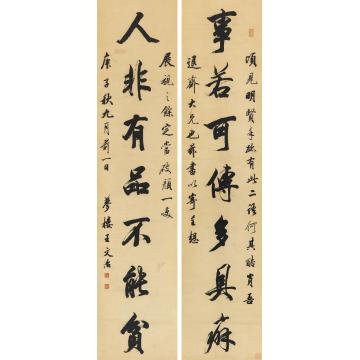 頃見明賢手跡有此二語何其酷肖吾
事若可傳多具癖
大兄也
書以寄
展視之餘定當破顏一笑
人非有品不能貧
庚子秋九月前一日
夢樓王文治